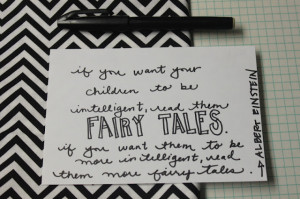 if you want your
children to be
intelligent, read them
FAIRY TALES.
if you want them to be
more intelligent, read
them more fairy tales.
→ ALBERT EINSTEIN